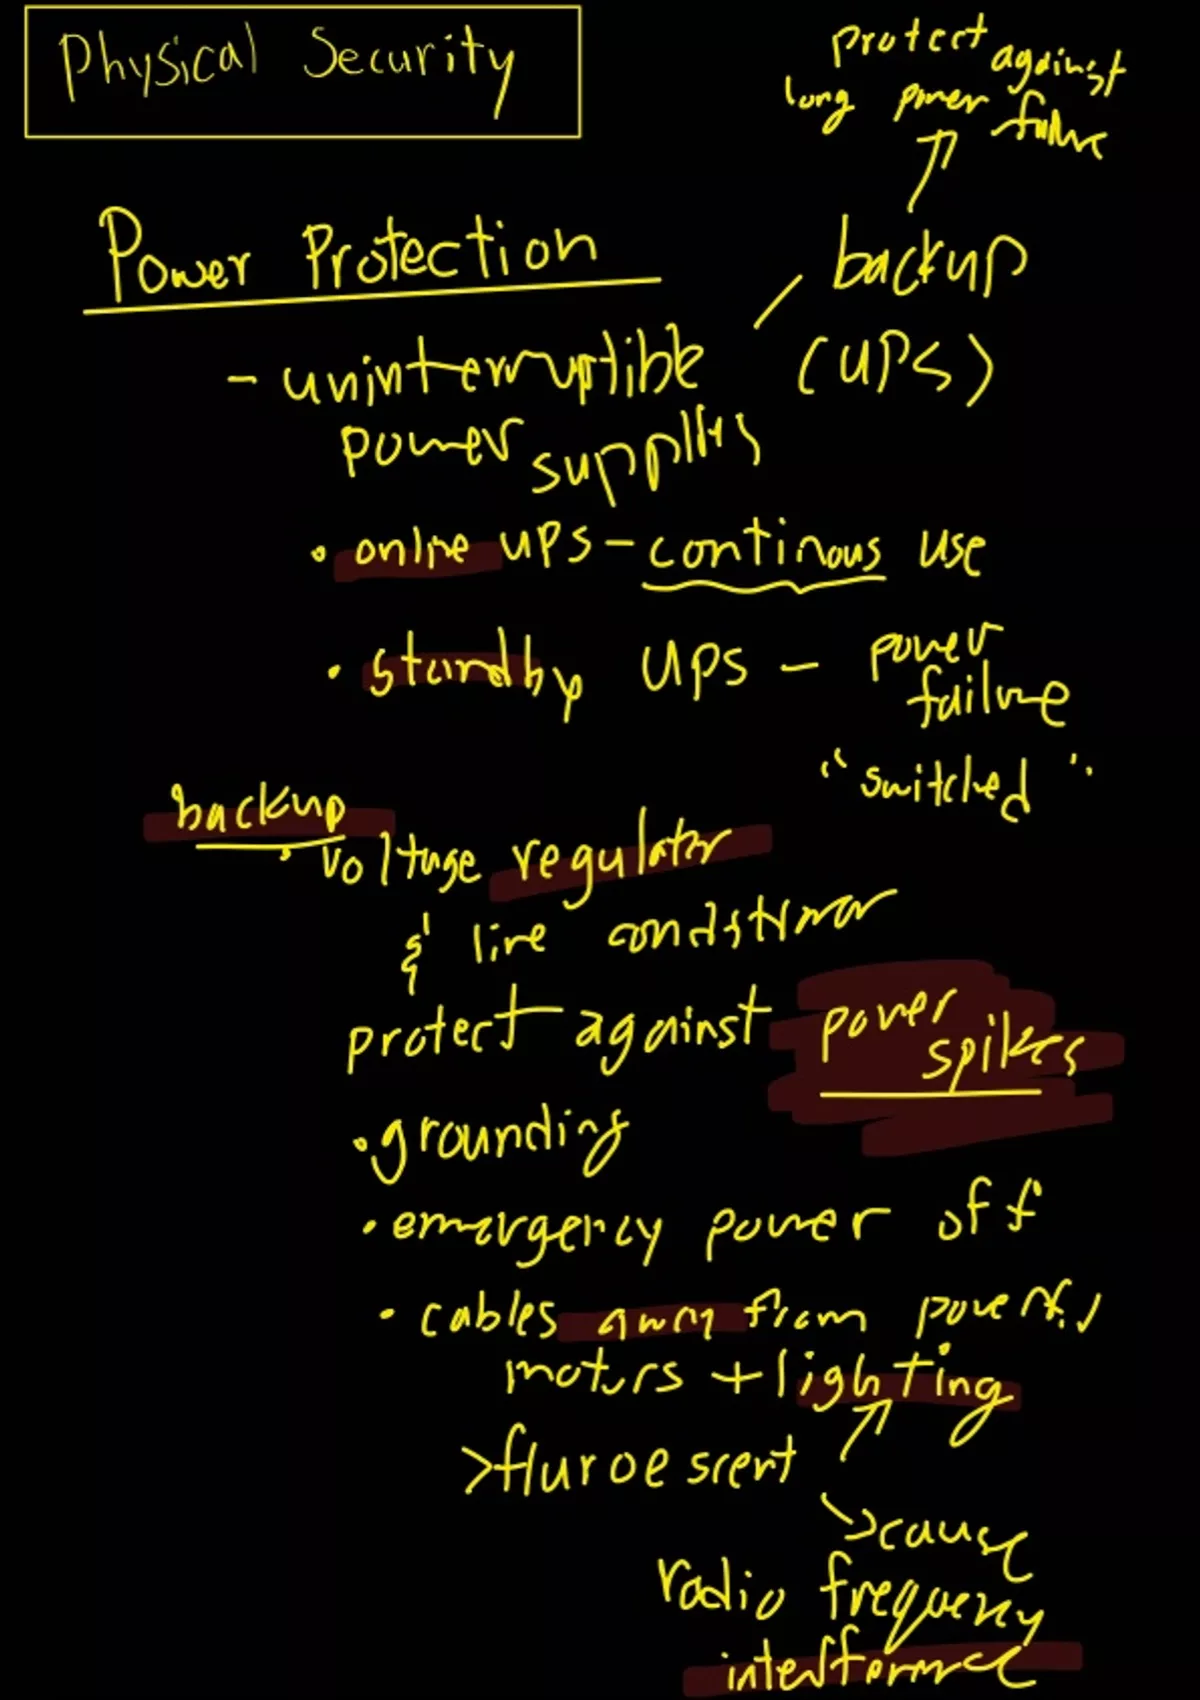 Physical Security
protect against
long power failure
Power Protection
backup
- uninterruptible
(UPS)
power supplies
• online UPS - continous use
• standby UPS - power
failure
"switched"
backup
• voltage regulator
& line conditioner
protect against power
spikes
• grounding
• emergency power off
• cables away from powerful
motors + lighting
> fluroescent
> cause
radio frequency
interference